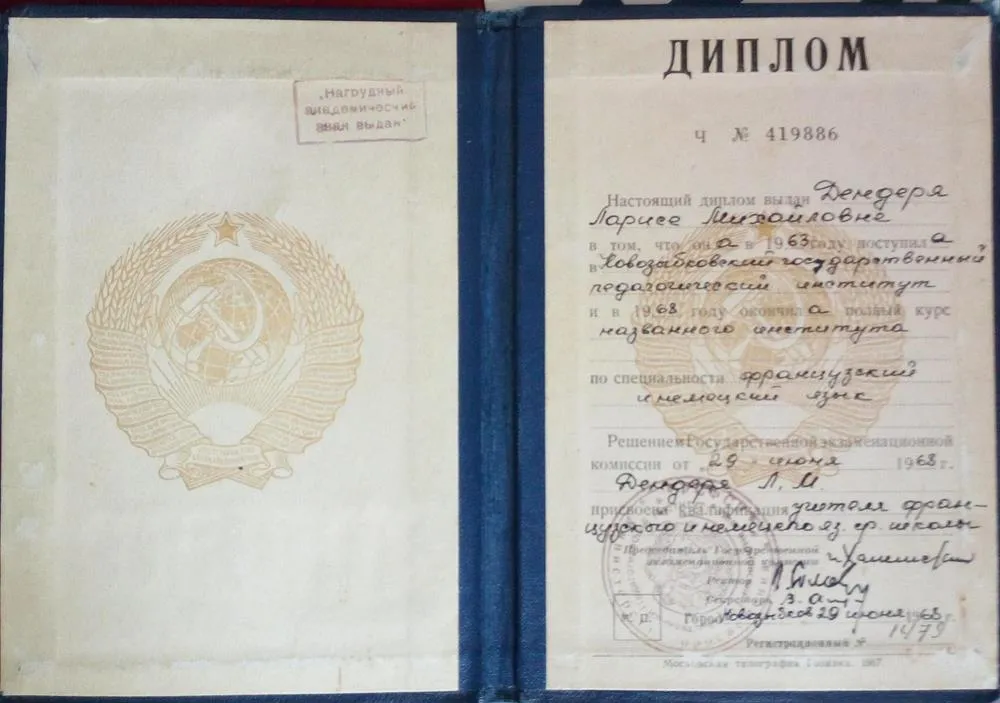 „Нагрудный
академический
знак выдан“
ДИПЛОМ
Ч № 419886
Настоящий диплом выдан Дендеря
Ларисе Михайловне
в том, что он а в 1963 году поступил а
в Новозыбковский государственный
педагогический институт
и в 1968 году окончил а полный курс
названного института
по специальности французский
и немецкий язык
Решением Государственной экзаменационной
комиссии от „29 июня 1968 г.
Дендеря Л. М.
присвоена квалификация учителя фран-
цузского и немецкого яз. ср. школы
Председатель Государственной
экзаменационной комиссии
Ректор
Секретарь
М. П. Город Новозыбков 29 июня 1968 г.
Регистрационный № 1479
Московская типография Гознака. 1967